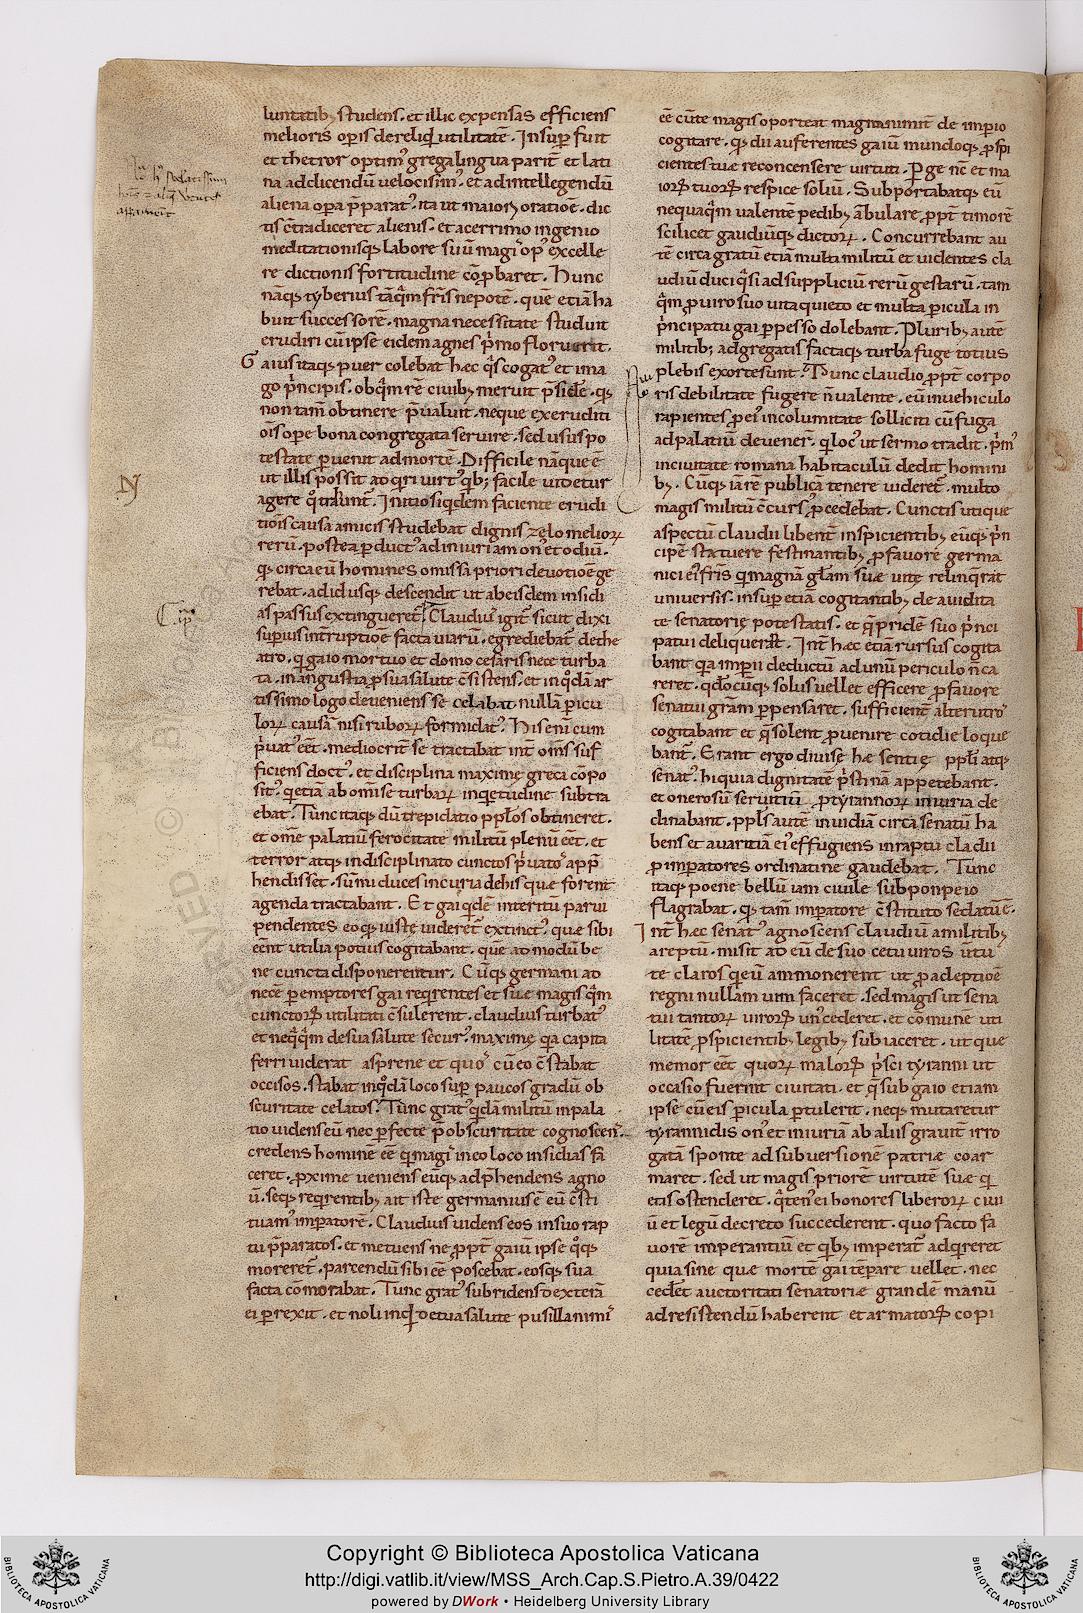 luntatib; studens. et illic expensas efficiens
melioris op̄is dereliq̇ utilitatē. Insup̄ fuit
et thetror optim᷒ gregalingua pariť et lati
na addicendū uelocisim᷒. et adintellegendū
aliena opa p̄parat᷒. ita ut maiorꝫ oratiōē. dic
tis c̄tradiceret alienis. et acerrimo ingenio
meditationisq; labore suū magi᷒ op᷒ excelle
re dictionis fortitudine cōp̄baret. Hunc
nāq; tyberius tāq̄m fr̄is nepotē. que etiā ha
buit successorē. magna necessitate studuit
erudiri cū ipse eidem agnes p̄mo floruerit.
Gaius itaq; puer colebat hæc q̄s cogat᷒ et ima
go p̄ncipis. obq̄m rē ciuib; meruit p̄sidē. q;
non tam̄ obtinere p̄ualuit. neque ex eruditi
oīs ope bona congregata seruire. sed usus po
testate puenit ad mortē. Difficile nāque ē
ut illis possit at qri uirt᷒ qb; facile uidetur
agere q̊ tribunť. Initio siq̇dem faciente erudi
tiōis causa amicis studebat dignis zelo meliorꝝ
rerū. postea pduct᷒ ad iniuriam onꝰ et odiū.
q; circa eū homines omissa priori deuotiōē ge
rebat. ad idusq; descendit ut ab eisdem insidi
as passus extingueret᷒. Claudius᷒ igit᷒ sicut dixi
sup̄ius int̄ruptiōe facta uiarū. egrediebat᷒ dethe
atro. q gaio mortuo et domo cesaris nece turba
ta. in angustia p sua salute c̄sistens. et in q̊dā ar
tissimo logo deueniens se celabat nullā picu
lorꝝ causā nisi ruborꝝ formidat᷒. Hic enī cum
p̄uat᷒ eēt. mediocrit᷒ se tractabat int᷒ om̄s suf
ficiens doct᷒. et disciplina maxime greca cōpo
sit᷒. q etiā ab om̄i se turbarꝝ inquietudine subtra
ebat. Tunc itaq; dū trepidatio pp̄los obtineret.
et om̄e palatiū ferocitate militū plenū eēt. et
terror atq; indisciplinato cunctos p̄uato᷒ app̄
hendisset. sūmi duces incuria de his quæ forent
agenda tractabant. Et gai qdē interitū parui
pendentes eo q; iuste uideret᷒ extinct᷒. quæ sibi
eēnt utilia potius cogitabant. quē at modū be
ne cuncta disponerentur. Cūq; germani ad
necē pemptores gai reqrentes et suæ magis q̄m
cunctorꝝ utilitati c̄sulerent. claudius turbat᷒
et neq̄q̄m de sua salute secur᷒. maxime qa capita
ferri uiderat asprene et quo᷒ cū eo c̄stabat
occisos. stabat inq̊dā loco sup̄ paucos gradū ob
scuritate celatos. Tunc grat᷒ q̊dā militū in pala
tio uidens eū nec pfecte p̄ obscuritate cognoscen᷒.
credens hominē eē q magi᷒ in eo loco insidias fā
ceret. pxime ueniens eūq; adp̄hendens agno
ū. seq; reqrentib; ait iste germanius ē eū c̄sti
tuam᷒ imp̄atorē. Claudius uidens eos in suo rap
tu p̄paratos. et metuens ne ppt̄ gaiū ipse q̊q;
moreret᷒. parcendū sibi eē poscebat. eosq; sua
facta cōmorabat. Tunc grat᷒ subridens dexterā
ei prexit. et noli inqd de tua salute pusillanimi᷒
eē cūte magis oporteat magnanimit᷒ de imp̄io
cogitare. q; dii auferentes gaiū mundoq; pspi
cientes tuæ reconcensere uirtuti. Pge nc̄ et ma
iorꝝ tuorꝝ respice soliū. Subportabatq; eū
nequaq̄m ualentē pedib; ābulare ppt̄ timorē
scilicet gaudiūq; dictorꝝ. Concurrebant au
tē circa gratū etiā multi militū et uidentes cla
udiū duci q̄si ad suppliciū rerū gestarū. tam
q̄m p uiro suo uita quieto et multa picula in
p̄ncipatu gai ppesso dolebant. Plurib; autē
militib; adgregatis factaq; turba fuge totius
plebis exorte sunt. Tunc claudio ppt̄ corpo
ris debilitate fugere n̄ ualente. eū in uehiculo
rapientes p ei᷒ incolumitate solliciti cū fuga
ad palatiū deuener᷒. q loc᷒ ut sermo tradit. p̄m᷒
in ciuitate romana habitaculū dedit homini
b;. Cūq; iā re publica tenere uideret᷒. multo
magis militū c̄curs᷒ pcedebat. Cunctis utique
aspectū claudii libent᷒ inspicientib; eūq; p̄n
cipē statuere festinantib; p fauorē germa
nici ei᷒ fr̄is q magnā glam suæ uite relinq̄rat
uniuersis. insup etiā cogitantib; de auidita
te senatoriæ potestatis. et q̄ pridē suo p̄nci
patui deliquerat. Int᷒ hæc etiā rursus cogita
bant qa imp̄ii deductū ad unū periculo n̄ ca
reret. qdocūq; solus uellet efficere p fauore
senatui gram ppensaret. sufficient᷒ alterutro
cogitabant et q̄ solent puenire cotidie loque
bant᷒. Erant ergo diuisæ hæ sentię ppl̄i atq;
senat᷒. hi quia dignitatē p̄stinā appetebant.
et onerosū seruitiū ptyrannorꝝ iniuria de
clinabant. ppl̄s autē inuidiā circa senatū ha
bens et auaritiā ei᷒ effugiens in raptu cladii
p imp̄atores ordinatine gaudebat. Tunc
itaq; poene bellū iam ciuile sub ponpeio
flagrabat. q; tam̄ imp̄atore c̄stituto sedatū ē.
Int᷒ hæc senat᷒ agnoscens claudiū a militib;
areptū. misit ad eū de suo cetu uiros ūtu
te claros q eū ammonerent ut p adeptiōē
regni nullam uim faceret. sed magis ut sena
tui tantorꝝ uirorꝝ un᷒ cederet. et cōmune uti
litatē pspicientib; legib; subiaceret. ut que
memor eēt quorꝝ malorꝝ p̄sci tyranni ut
occasio fuerint ciuitati. et q̄ sub gaio etiam
ipse cū eis picula ptulerit. neq; mutaretur
tyrannidis on᷒ et iniuriā ab aliis grauit᷒ irro
gatā sponte ad subuersionē patriæ coar
maret. sed ut magis priorē uirtutē suæ q
etis ostenderet. q̄ten᷒ ei honores liberorꝝ ciui
ū et legū decreto succederent. quo facto fa
uorē imperantiū et qb; imperat᷒ adqreret
quia sine quæ mortē gai tēpare uellet. nec
cedet᷒ auctoritati senatoriæ grandē manū
ad resistendū haberent et armatorꝝ copi
Copyright © Biblioteca Apostolica Vaticana
http://digi.vatlib.it/view/MSS_Arch.Cap.S.Pietro.A.39/0422
powered by DWork • Heidelberg University Library
BIBLIOTECA APOSTOLICA VATICANA
BIBLIOTECA APOSTOLICA VATICANA